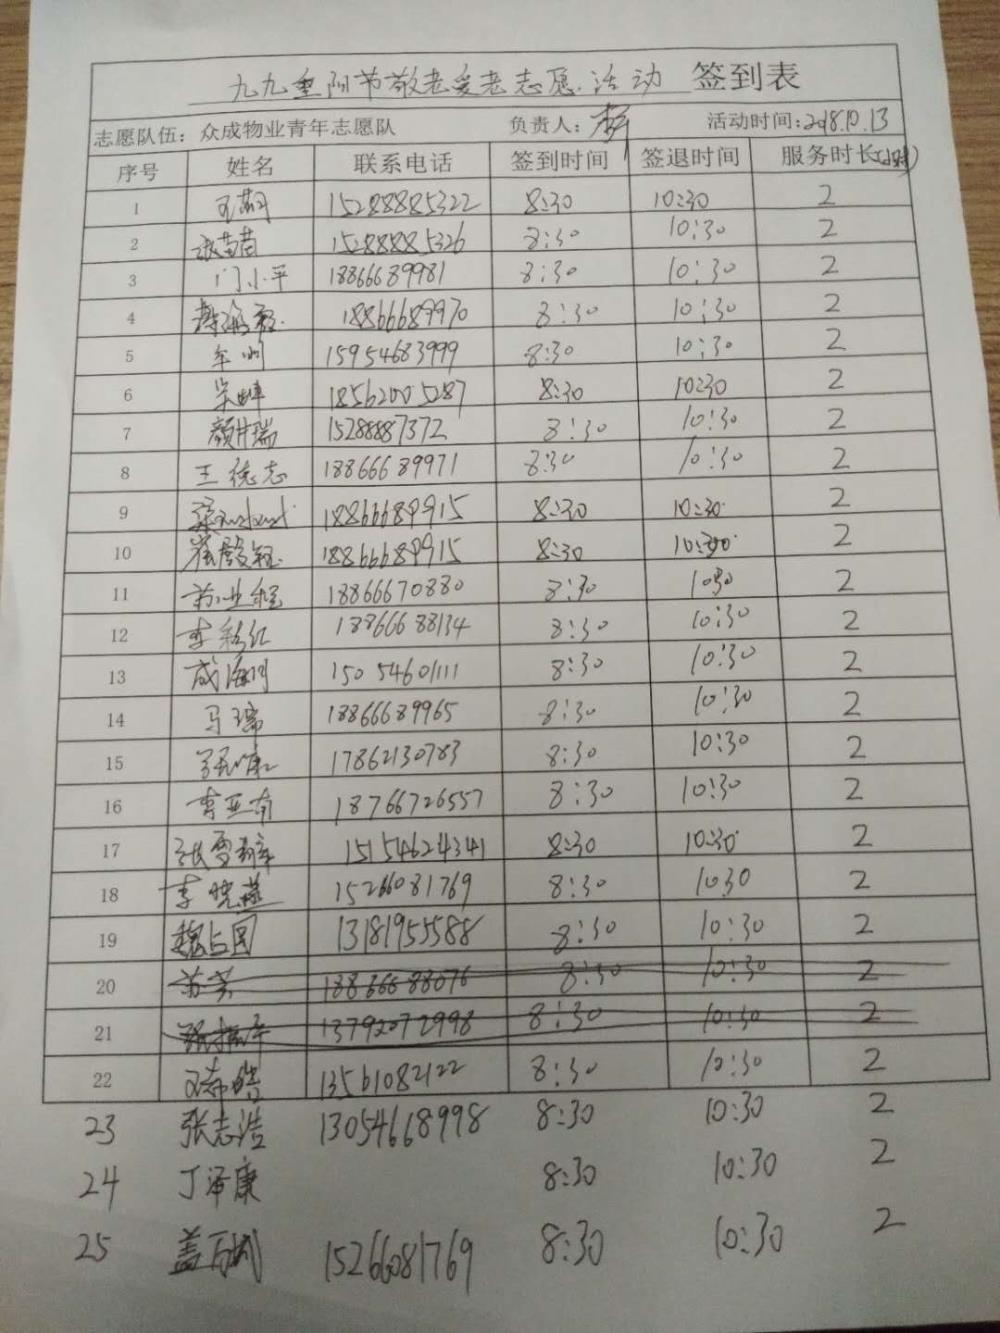 九九重阳节敬老爱老志愿活动 签到表
志愿队伍：众成物业青年志愿队 负责人： 活动时间：2018.10.13
序号 姓名 联系电话 签到时间 签退时间 服务时长(小时)
1 15288885322 8:30 10:30 2
2 张苗苗 15288885326 8:30 10:30 2
3 门小平 18866689981 8:30 10:30 2
4 18866689970 8:30 10:30 2
5 15954683999 8:30 10:30 2
6 18562005287 8:30 10:30 2
7 颜廷瑞 15288887372 8:30 10:30 2
8 王德志 18866689971 8:30 10:30 2
9 18866689915 8:30 10:30 2
10 18866689915 8:30 10:30 2
11 18866670880 8:30 1030 2
12 李彩红 18866688134 8:30 10:30 2
13 成海川 15054601111 8:30 10:30 2
14 马瑞 18866689965 8:30 10:30 2
15 17862130783 8:30 10:30 2
16 李亚南 18766726557 8:30 10:30 2
17 15154624341 8:30 10:30 2
18 李晓燕 15266081769 8:30 1030 2
19 魏占国 13181955588 8:30 10:30 2
20 苏芳 18866688076 8:30 10:30 2
21 13792072998 8:30 10:30 2
22 13561082122 8:30 10:30 2
23 张志浩 13054668998 8:30 10:30 2
24 丁泽康 8:30 10:30 2
25 15266081769 8:30 10:30 2